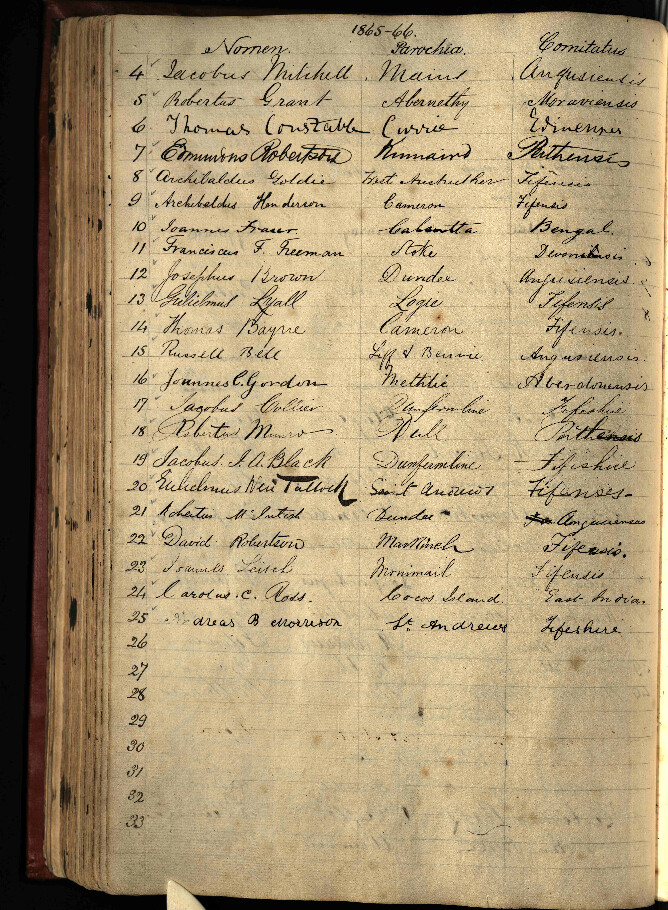 1865-66.
Nomen. Parochia. Comitatus
4 Jacobus Mitchell Mains Angusiensis
5 Robertus Grant Abernethy Moraviensis
6 Thomas Constable Currie
7 Robertson Kinnaird Perthensis
8 Archibaldus Goldie West Anstruther Fifensis
9 Archibaldus Henderson Cameron Fifensis
10 Joannes Fraser Calcutta Bengal.
11 Franciscus F. Freeman Stoke
12 Josephus Brown Dundee Angusiensis
13 Gulielmus Lyall Logie Fifensis
14 Thomas Bayne Cameron Fifensis.
15 Russell Bell Liff & Benvie Angusiensis.
16 Joannes C. Gordon Methlic Aberdonensis
17 Jacobus Collier Dunfermline Fifeshire
18 Robertus Munro
19 Jacobus J. A. Black Dunfermline - Fifeshire
20 Gulielmus Neil Tulloch Saint Andrews Fifenses-
21 Robertus McIntosh Dundee Angusiensis
22 David Robertson Markinch Fifensis.
23 Joannes Leitch Monimail Fifensis
24 Carolus. C. Ross. Cocos Island. East India.
25 Andreas B Morrison St. Andrews Fifeshire
26
27
28
29
30
31
32
33